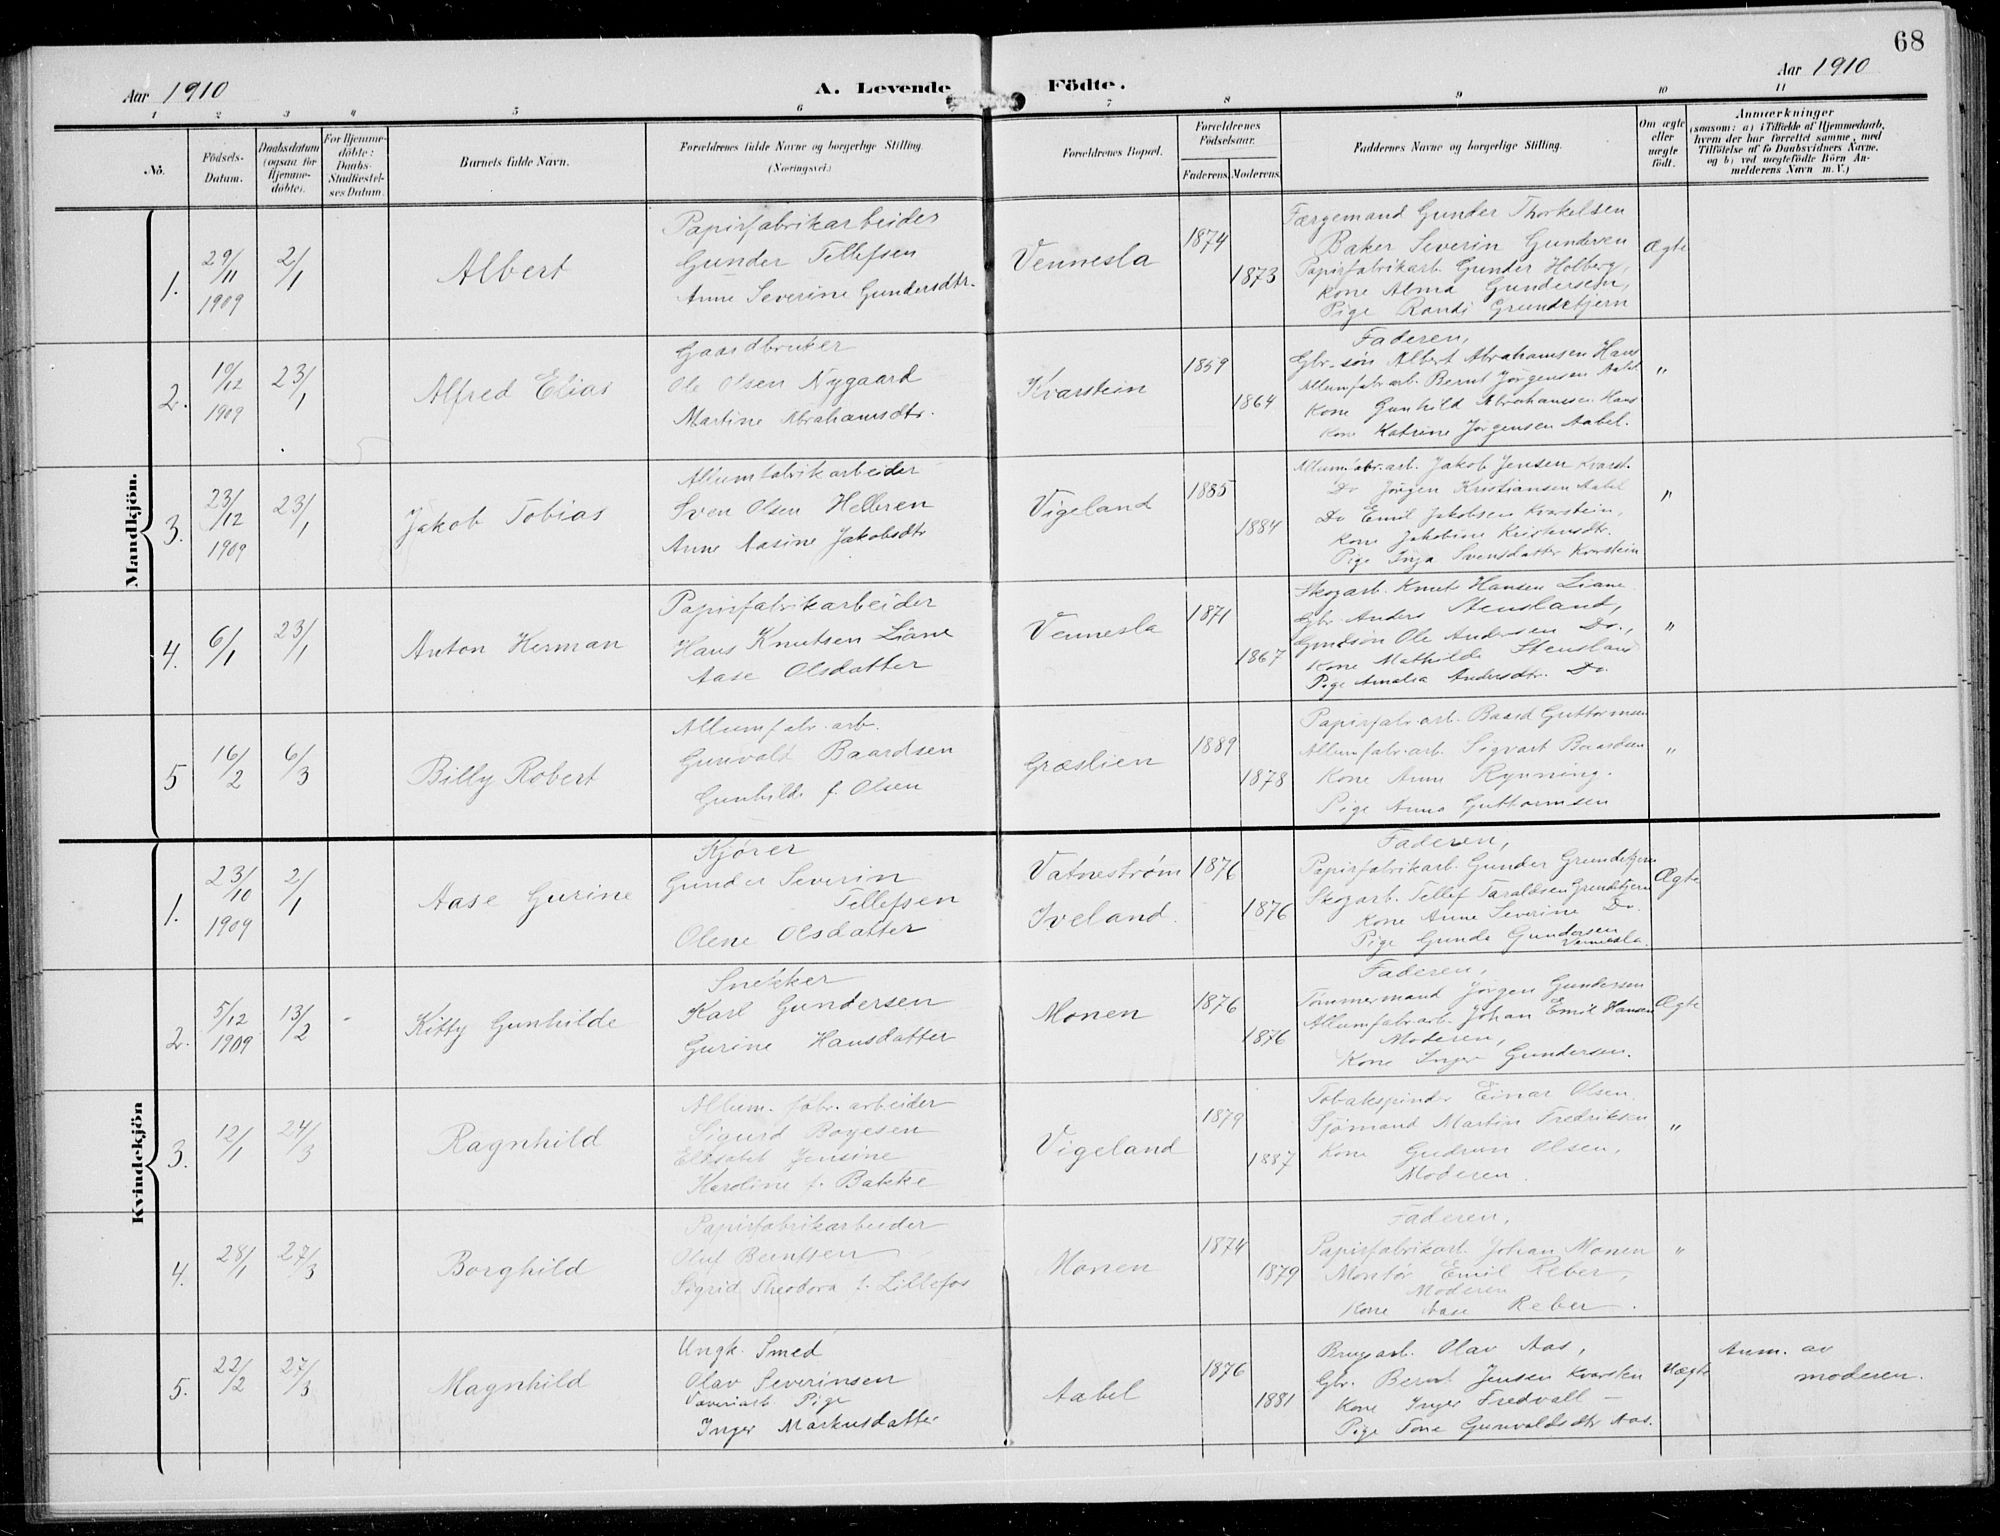 68
Aar 1910
A. Levende Födte.
Aar 1910
1 2 3 4 5 6 7 8 9 10 11
Nö.
Födsels-
Datum.
Daabsdatum
(ogsaa for
Hjemme-
döbte).
For Hjemme-
döbte:
Daabs-
Stadfæstel-
ses Datum.
Barnets fulde Navn.
Forældrenes fulde Navne og borgerlige Stilling.
(Næringsvei.)
Forældrenes Bopæl.
Forældrenes
Födselsaar.
Faderens. Moderens.
Faddernes Navne og borgerlige Stilling.
Om ægte
eller
uægte
födt.
Anmærkninger
(saasom: a) i Tilfælde af Hjemmedaab,
hvem der har forrettet samme, med
Tilföielse af to Daabsvidners Navne,
og b) ved uægtefödte Börn An-
melderens Navn m. V.)
Mandkjön.
1.
29/11
1909
2/1
Albert
Papirfabrikarbeider
Gunder Tellefsen
Anne Severine Gundersdtr.
Vennesla
1874
1873
Færgemand Gunder Thorkelsen
Baker Severin Gundersen
Papirfabrikarb. Gunder Holberg,
Kone Alma Gundersen,
Pige Randi Grundetjern
Ægte
2.
19/12
1909
23/1
Alfred Elias
Gaardbruker
Ole Olsen Nygaard
Martine Abrahamsdtr.
Kvarstein
1859
1864
Faderen,
Gbr-søn Albert Abrahamsen Haus
Allumfabr.arb. Bernt Jørgensen Aabel
Kone Gunhild Abrahamsen Haus
Kone Katrine Jørgensen Aabel.
"
3.
23/12
1909
23/1
Jakob Tobias
Allumfabrikarbeider
Sven Olsen Helleren
Anne Aasine Jakobsdtr
Vigeland
1885
1884
Allum.fabr.arb. Jakob Jensen Kvarst.
Do Jørgen Kristiansen Aabel
Do Emil Jakobsen Kvarstein,
Kone Jakobine Kristensdtr.
Pige Inga Svensdatter Kvarstein
"
4.
6/1
23/1
Anton Herman
Papirfabrikarbeider
Hans Knutsen Liane
Aase Olsdatter
Vennesla
1871
1867
Skogarb. Knut Hansen Liane
Gbr. Anders Stensland,
Ole Andersen Do.,
Kone Mathilde Stensland
Pige Amalia Andersdtr. Do.
"
5
16/2
6/3
Billy Robert
Allumfabr.arb.
Gunvald Baardsen
Gunhilde f. Olsen
Græslien
1889
1878
Papirfabr.arb. Baard Guttormsen
Allumfabr.arb. Sigvart Baardsen
Kone Anne Rynning.
Pige Anna Guttormsen
"
Kvindekjön
1.
23/10
1909
2/1
Aase Gurine
Kjører
Gunder Severin
Tellefsen
Olene Olsdatter
Vatnestrøm
Iveland.
1876
1876
Faderen,
Papirfabrikarb. Gunder Grundetjern
Skogarb. Tellef Taraldsen Grundetjern
Kone Anne Severine Do.
Pige Gunda Gundersen
Vennesla.
Ægte
2.
5/12
1909
13/2
Kitty Gunhilde
Snekker
Karl Gundersen
Gurine Hansdatter
Monen
1876
1876
Faderen,
Tømmermand Jørgen Gundersen
Allumfabr.arb. Johan Emil Hansen
Moderen,
Kone Inger Gundersen.
Ægte
3.
12/1
24/3
Ragnhild
Allum. fabr. arbeider
Sigurd Boyesen
Elisabet Jensine
Karoline f. Bakke
Vigeland
1879
1887
Tobakspinder Einar Olsen.
Sjømand Martin Fredriksen
Kone Gudrun Olsen,
Moderen.
"
4.
28/1
27/3
Borghild
Papirfabrikarbeider
Oluf Berntsen
Sigrid Theodora f. Lillefos
Monen
1874
1879
Faderen,
Papirfabrikarb. Johan Monen
Montør Emil Reber,
Moderen
Kone Aase Reber.
"
5.
22/2
27/3
Magnhild
Ungk. Smed
Olav Severinsen
Væveriarb. Pige
Inger Markusdatter
Aabel
1876
1881
Brugsarb. Olav Aas,
Gbr. Bernt Jensen Kvarstein
Kone Inger Fredvall
Pige Tone Gunvaldsdtr Aas.
Uægte
Anm. av
moderen.